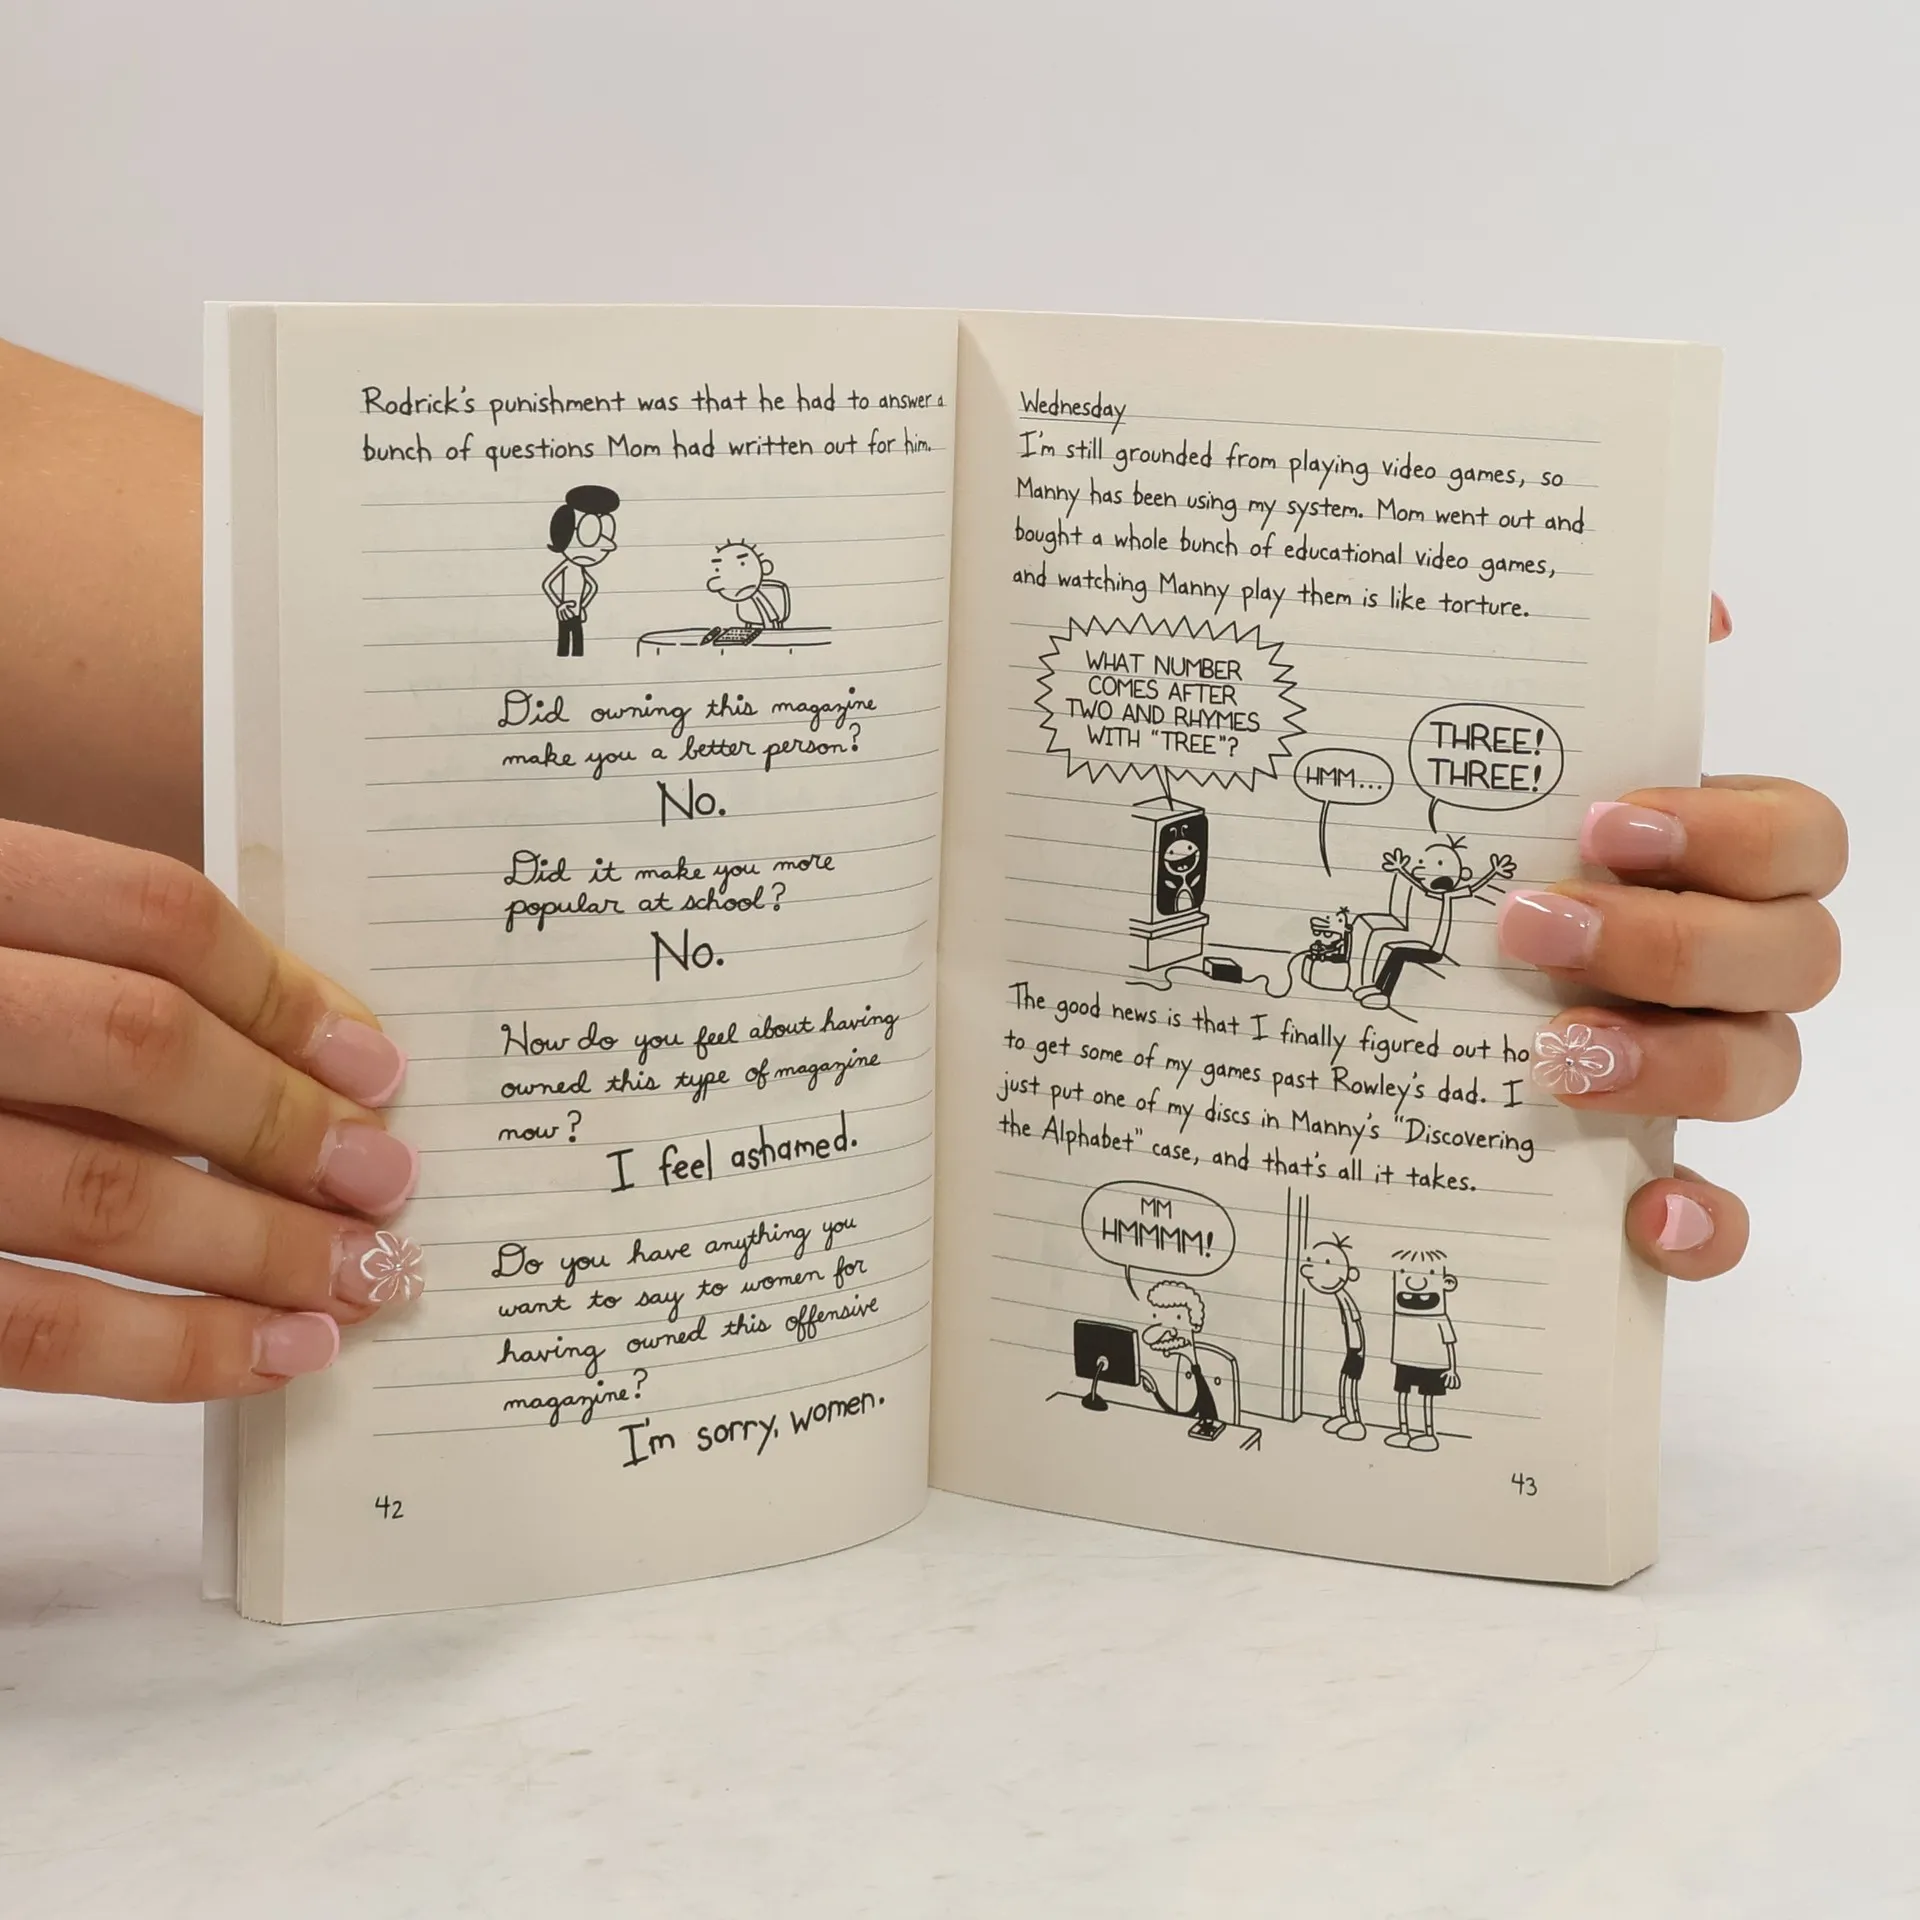 Rodrick's punishment was that he had to answer a
bunch of questions Mom had written out for him.
Did owning this magazine
make you a better person?
No.
Did it make you more
popular at school?
No.
How do you feel about having
owned this type of magazine
now?
I feel ashamed.
Do you have anything you
want to say to women for
having owned this offensive
magazine?
I'm sorry, women.
42
Wednesday
I'm still grounded from playing video games, so
Manny has been using my system. Mom went out and
bought a whole bunch of educational video games,
and watching Manny play them is like torture.
WHAT NUMBER
COMES AFTER
TWO AND RHYMES
WITH "TREE"?
HMM...
THREE!
THREE!
The good news is that I finally figured out ho
to get some of my games past Rowley's dad. I
just put one of my discs in Manny's "Discovering
the Alphabet" case, and that's all it takes.
MM
HMMMM!
43